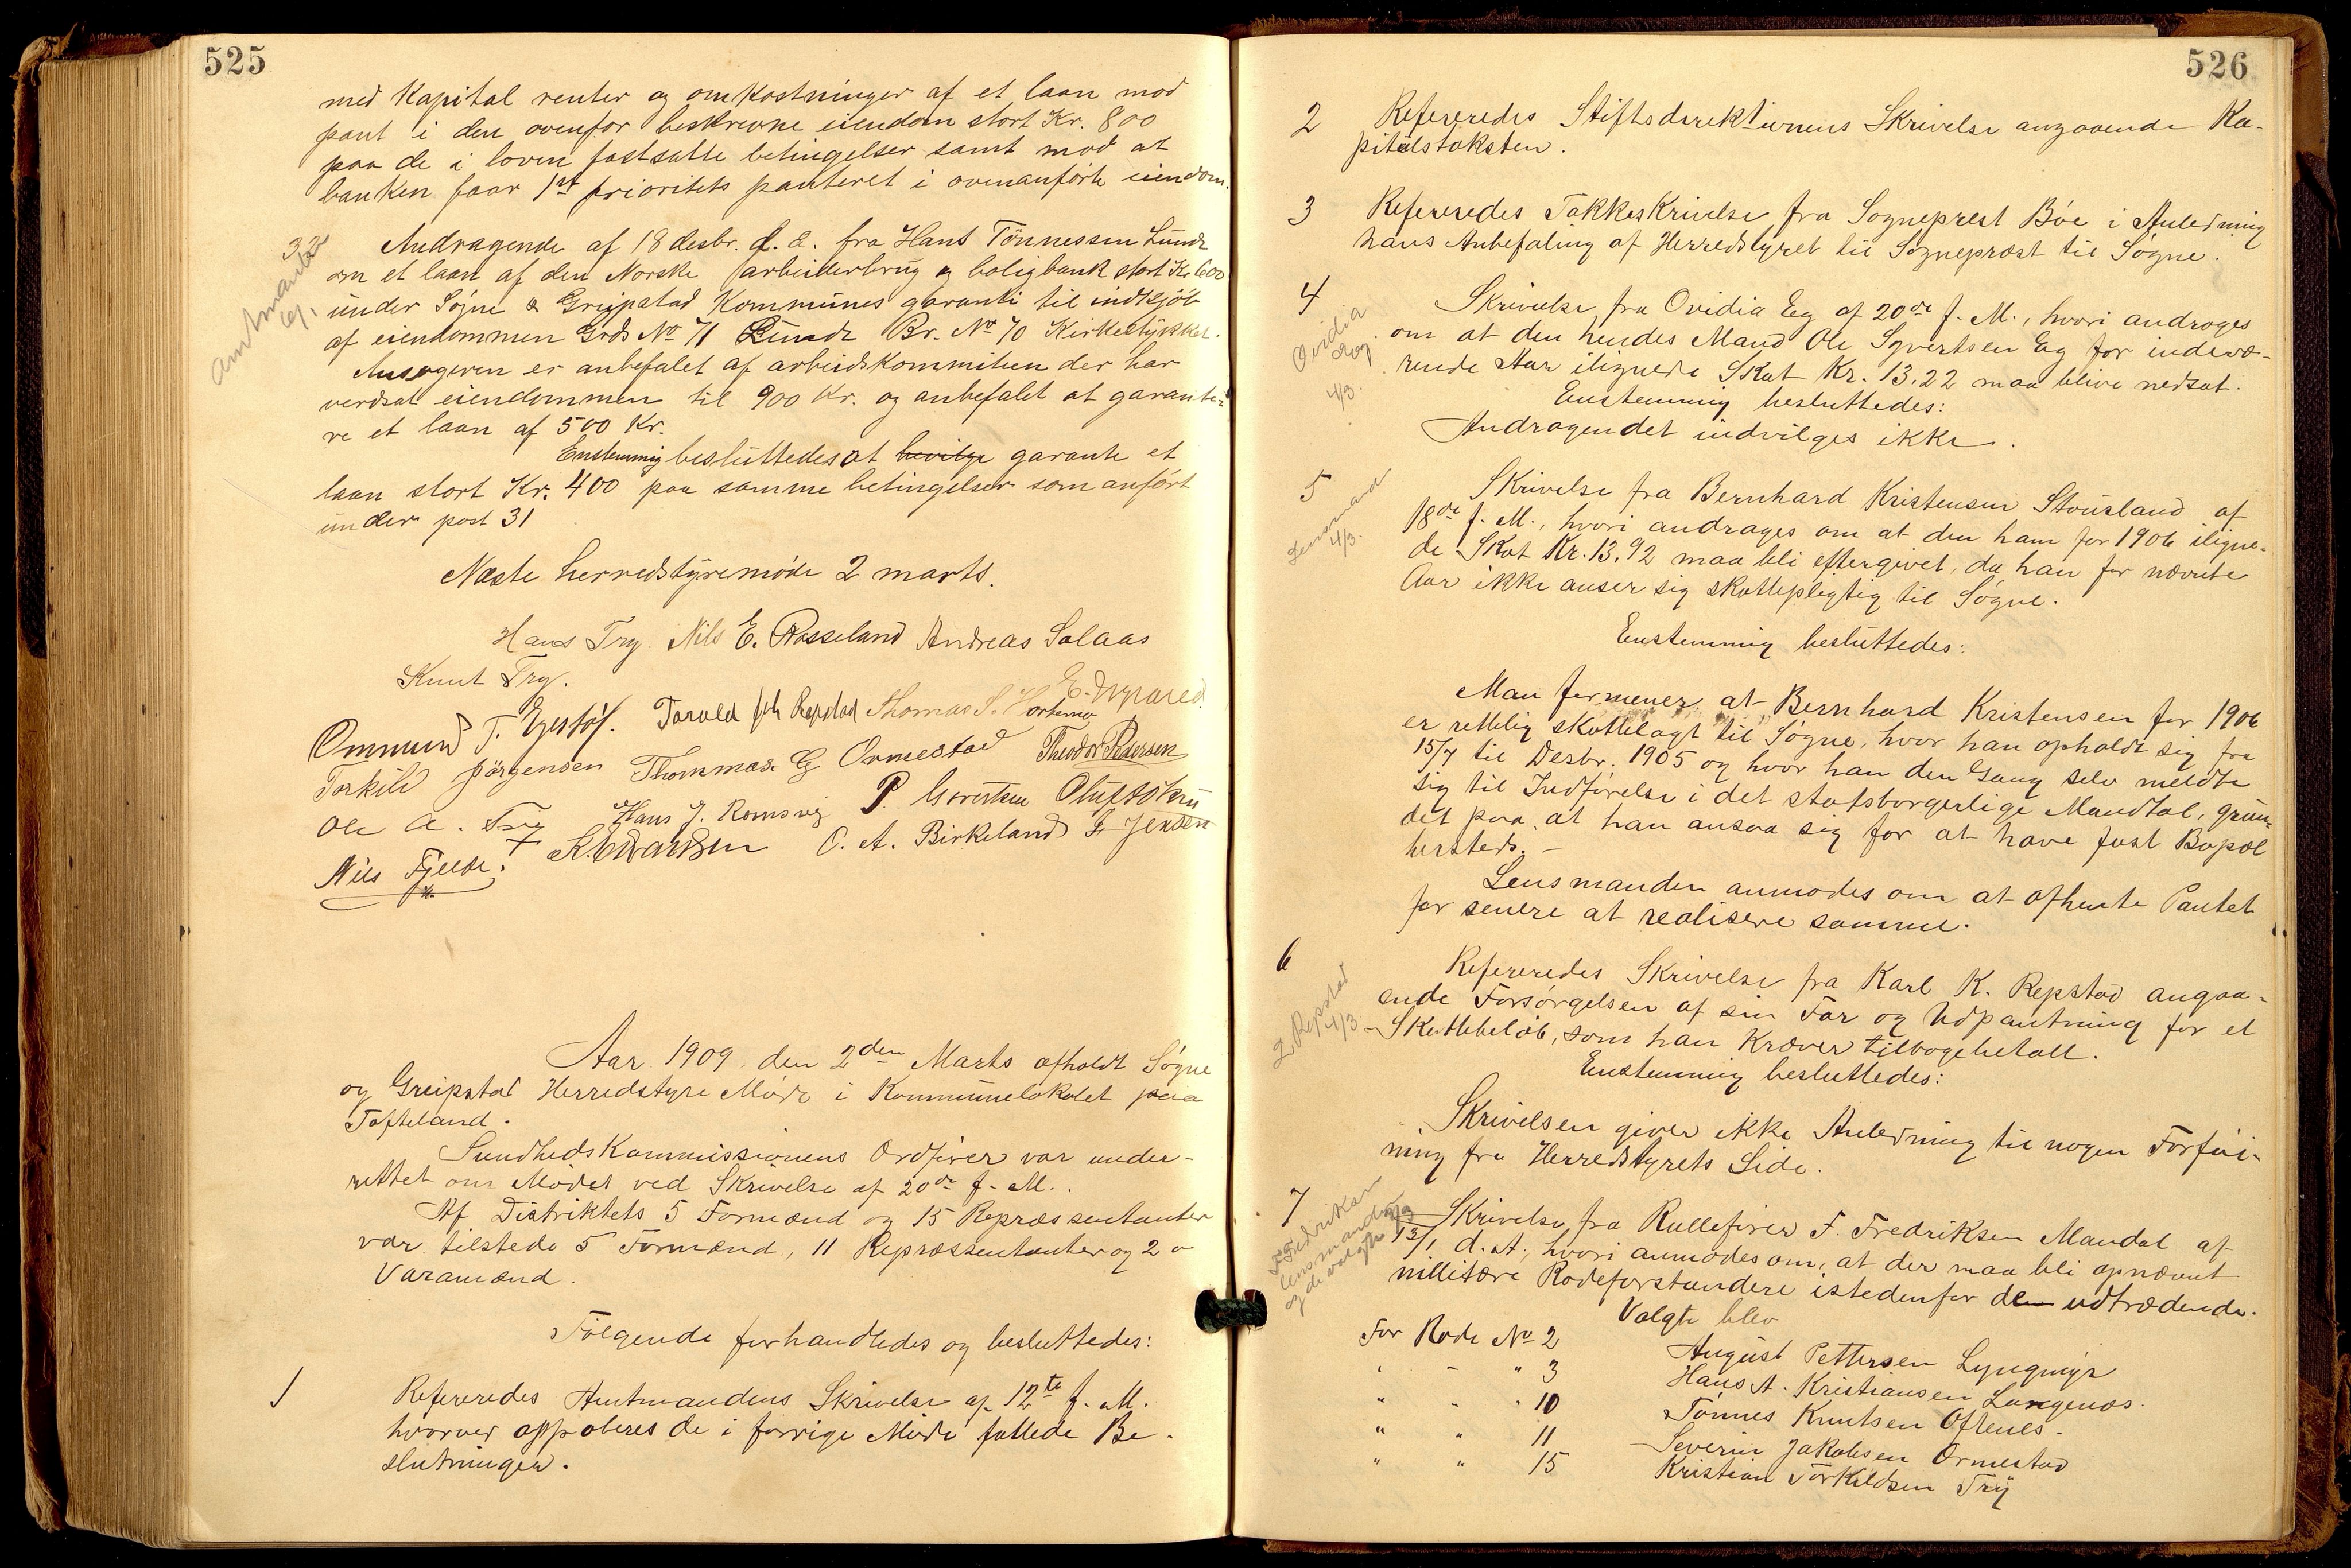 525
med Kapital renter og omkostninger af et laan mod
pant i den ovenfor beskrevne eiendom stort Kr. 800
paa de i loven fastsatte betingelser samt mod at
banken faar 1st prioritets panteret i ovenanførte eiendom.
32
Amtmand
Andragende af 18 desbr. f. A. fra Hans Tønnessen Lunde
om et laan af den Norske arbeiderbrug og boligbank stort Kr 600
under Søgne & Greipstad Kommunes garanti til indkjøb
af eiendommen Grds No 71 Lunde Br. No 70 Kirkestykket.
Ansøgeren er anbefalet af arbeidskommiteen der har
verdsat eiendommen til 900 Kr. og anbefalet at garante-
re et laan af 500 Kr.
Enstemmig besluttedes at bevilge garante et
laan stort Kr. 400 paa samme betingelser som anført
under post 31
Næste herredstyremøde 2 marts.
Hans Try. Nils E. Rosseland Andreas Salaas
Knut Try.
Ommund T. Egestøl. Torvald Repstad Thomas S. Hortemo
Torkild Jørgensen Thommas G Ormestad Theodor Pedersen
Ole A. Try Hans J. Romsvig P. Syvertsen
K. Edvardsen O. A. Birkeland Jensen
Nils Fjelde.
Aar 1909 den 2den Marts afholdt Søgne
og Greipstad Herredstyre Møde i Kommunelokalet paa
Tofteland.
Sundhedskommissionens Ordfører var under-
rettet om Mødet ved Skrivelse af 20de f. M.
Af Distriktets 5 Formænd og 15 Repræssentanter
var tilstede 5 Formænd, 11 Repræssentanter og 2
Varamænd.
Følgende forhandledes og besluttedes:
1
Refereredes Amtmandens Skrivelse af 12te f. M.
hvorved approberes de i forrige Møde fattede Be-
slutninger.
526
2 Refereredes Stiftsdirektionens Skrivelse angaaende Ka-
pitalstaksten.
3 Refereredes Takkeskrivelse fra Sogneprest Bøe i Anledning
hans Anbefaling af Herredstyret til Sogneprest til Søgne.
4
Ovidia
Eg
4/3.
Skrivelse fra Ovidia Eg af 20de f. M., hvori androges
om at den hendes Mand Ole Syvertsen Eg for indevæ-
rende Aar ilignede Skat Kr. 13,22 maa blive nedsat.
Enstemmig besluttedes:
Andragendet indvilges ikke.
5
Lensmand
4/3.
Skrivelse fra Bernhard Kristensen Stousland af
18de f. M., hvori andrages om at den ham for 1906 iligne-
de Skat Kr. 13,92 maa bli eftergivet, da han for nævnte
Aar ikke anser sig skattepligtig til Søgne.
Enstemmig besluttedes:
Man formener at Bernhard Kristensen for 1906
er rettelig skattelagt til Søgne, hvor han opholdt sig fra
15/7 til Desbr. 1905 og hvor han den Gang selv meldte
sig til Indførelse i det statsborgerlige Mandtal, grun-
det paa, at han ansaa sig for at have fast Bopæl
hersteds. -
Lensmanden anmodes om at afhente Pantet
for senere at realisere samme.
6
Repstad
4/3
Refereredes Skrivelse fra Karl K. Repstad angaa-
ende Forsørgelsen af sin Far og Udpantning for et
Skattebeløb, som han kræver tilbagebetalt.
Enstemmig besluttedes:
Skrivelsen giver ikke Anledning til nogen Forføi-
ning fra Herredstyrets Side.
7
F. Fredriksen
lensmanden
og de valgte
4/3
Skrivelse fra Rullefører F. Fredriksen Mandal af
13/1 d. A., hvori anmodes om, at der maa bli opnævnt
millitære Rodeforstandere istedenfor den udtrædende.
Valgte blev
For Rode No 2 August Pettersen Lyngmyr
" - " 3 Hans A. Kristiansen Langenes.
" " " 10 Tønnes Knutsen Oftenes.
" " 11 Severin Jakobsen Ormestad
" " 15 Kristian Torkildsen Try